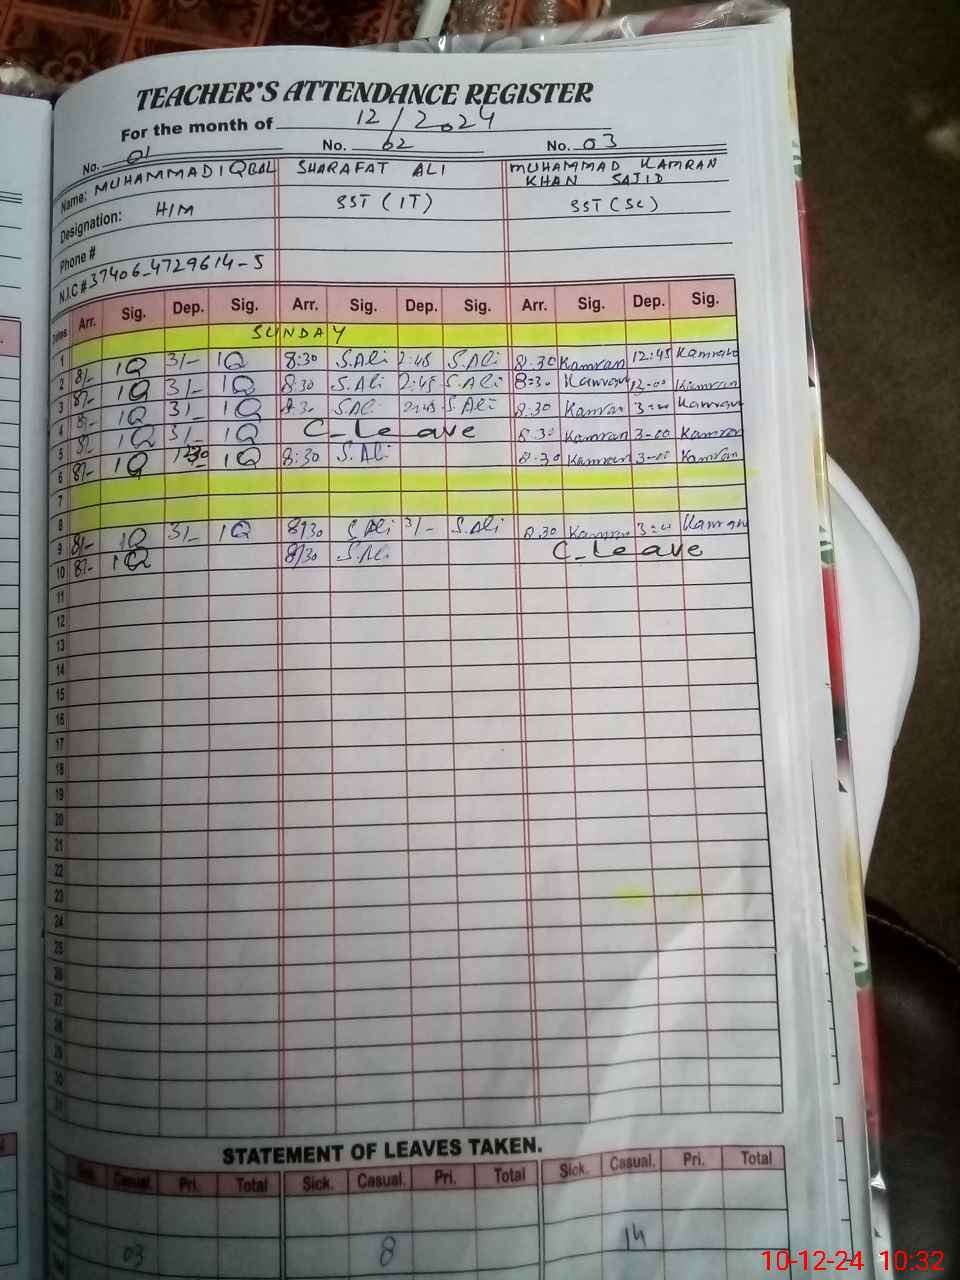 TEACHER'S ATTENDANCE REGISTER
For the month of 12/2024
No. 01 No. 02 No. 03
Name: MUHAMMAD IQBAL SHARAFAT ALI MUHAMMAD KAMRAN
KHAN SAJID
Designation: H/M SST (IT) SST (SC)
Phone #
N.I.C # 37406-4729614-5
Dates Arr. Sig. Dep. Sig. Arr. Sig. Dep. Sig. Arr. Sig. Dep. Sig.
1 SUNDAY
2 8/- IQ 3/- IQ 8:30 S.Ali 2:45 S.Ali 8:30 Kamran 12:45 Kamran
3 8/- IQ 3/- IQ 8:30 S.Ali 2:45 S.Ali 8:30 Kamran Kamran
4 8/- IQ 3/- IQ S.Ali 2:45 S.Ali 8:30 Kamran 3=00 Kamran
5 8/- IQ 3/- IQ C-Leave 8:30 Kamran 3-00 Kamran
6 8/- IQ IQ 8:30 S.Ali 8:30 Kamran 3-00 Kamran
7
8
9 8/- IQ 3/- IQ 8/30 S.Ali 3/- S.Ali 8:30 Kamran 3=00 Kamran
10 8/- IQ 8/30 S.Ali C-Leave
11
12
13
14
15
16
17
18
19
20
21
22
23
24
25
26
27
28
29
30
31
STATEMENT OF LEAVES TAKEN.
Sick. Casual. Pri. Total Sick. Casual. Pri. Total Sick. Casual. Pri. Total
03 8 14
10-12-24 10:32